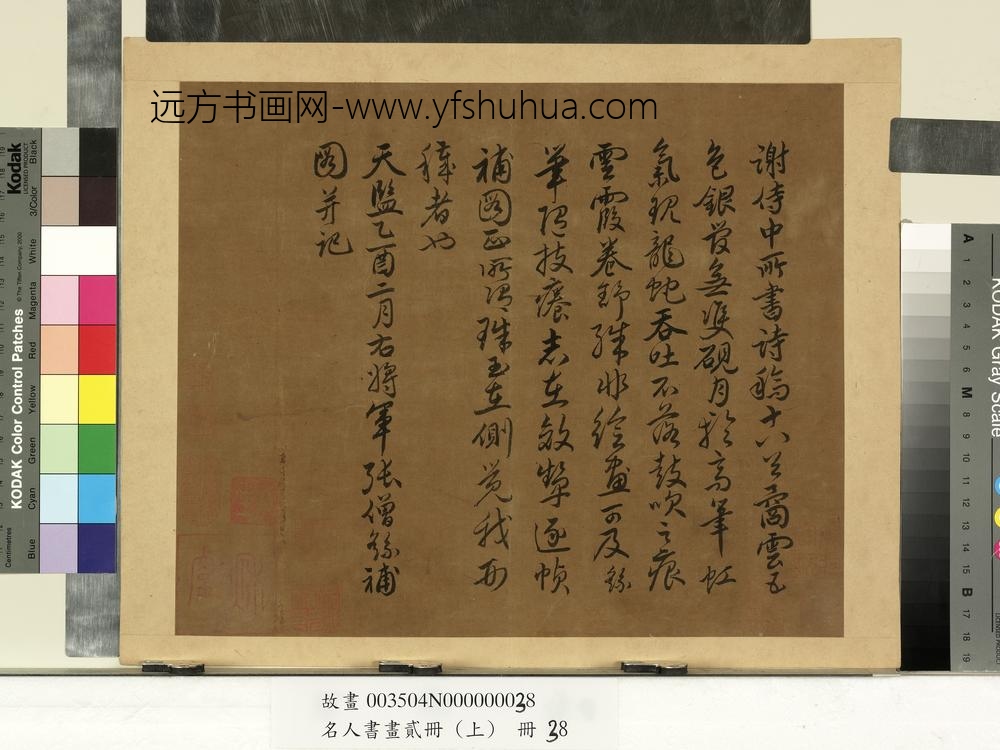 远方书画网-www.yfshuhua.com
谢侍中所書詩稿十八首霱雲五
色銀 無 硯月 高筆虹
氣 龍蛇吞吐不落鼓吹之痕
雲霞卷舒殊非繪畫可及繇
筆 技癢志在效顰逐幀
補圖正所謂珠玉在側覺我形
穢者也
天監乙酉二月右將軍張僧繇補
圖并記
Kodak
LICENSED PRODUCT
Black
3/Color
White
Magenta
Red
Yellow
Green
Cyan
Blue
KODAK Color Control Patches
© The Tiffen Company, 2000
Centimetres
KODAK Gray Scale
A 1 2 3 4 5 6 M 8 9 10 11 12 13 14 15 B 17 18 19
故畫 003504N000000038
名人書畫貳冊（上） 冊 38